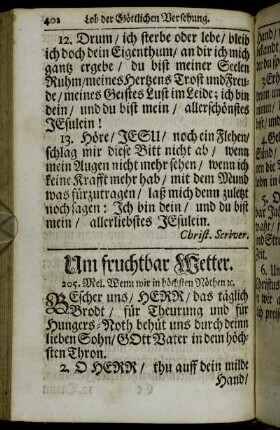 402 Lob der Göttlichen Versehung.
12. Drum / ich sterbe oder lebe / bleib
ich doch dein Eigenthum / an dir ich mich
gantz ergebe / du bist meiner Seelen
Ruhm / meines Hertzens Trost und Freu-
de / meines Geistes Lust im Leide; ich bin
dein / und du bist mein / allerschönstes
JEsulein!
13. Höre / JESU / noch ein Flehen /
schlag mir diese Bitt nicht ab / wenn
mein Augen nicht mehr sehen / wenn ich
keine Krafft mehr hab / mit dem Mund
was fürzutragen / laß mich denn zuletzt
noch sagen: Ich bin dein / und du bist
mein / allerliebstes JEsulein.
Christ. Scriver.
Um fruchtbar Wetter.
205. Mel. Wenn wir in höchsten Nöthen ꝛc.
BEscher uns / HERR / das täglich
Brodt / für Theurung und für
Hungers-Noth behüt uns durch deinn
lieben Sohn / GOtt Vater in dem höch-
sten Thron.
2. O HERR / thu auff dein milde
Hand /